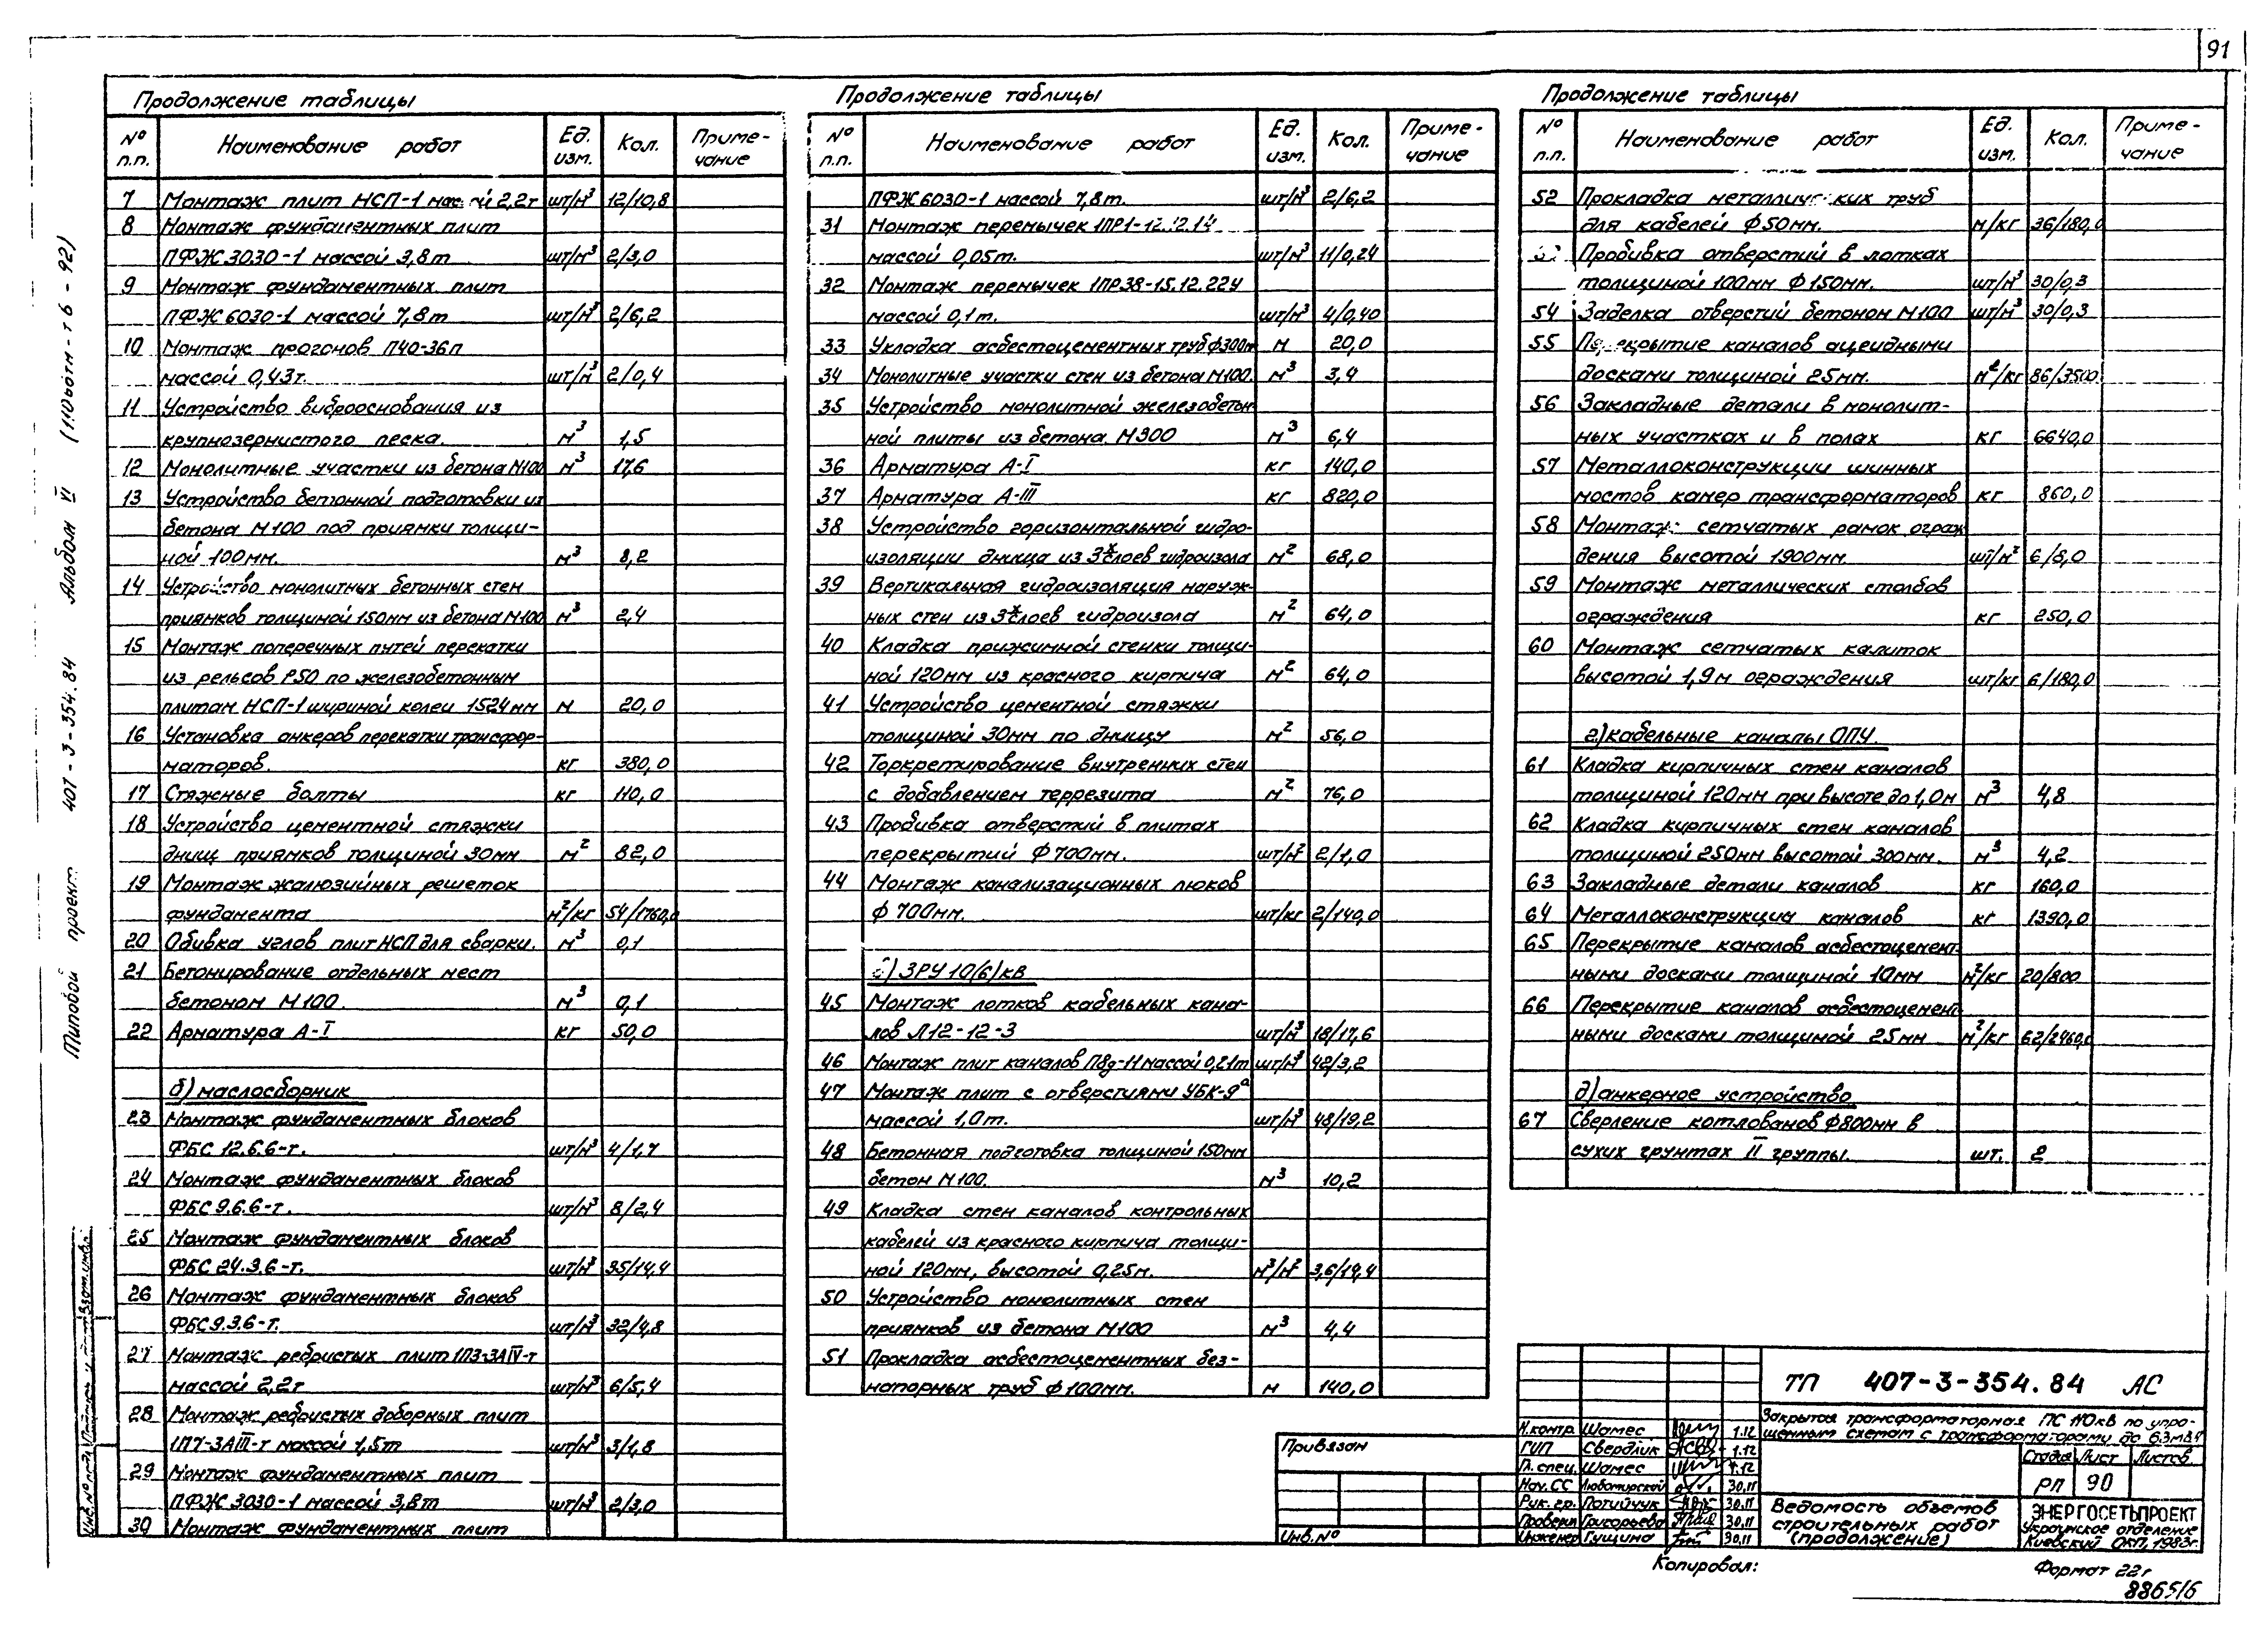 91
Продолжение таблицы
№ п.п. Наименование работ Ед. изм. Кол. Примечание
7 Монтаж плит НСП-1 массой 2,2т шт/м³ 12/10,8
8 Монтаж фундаментных плит
ПФЖ 3030-1 массой 3,8т шт/м³ 2/3,0
9 Монтаж фундаментных плит
ПФЖ 6030-1 массой 7,8т шт/м³ 2/6,2
10 Монтаж прогонов П40-36п
массой 0,43т. шт/м³ 2/0,4
11 Устройство виброоснования из
крупнозернистого песка. м³ 1,5
12 Монолитные участки из бетона М100 м³ 17,6
13 Устройство бетонной подготовки из
бетона М100 под приямки толщи-
ной 100мм. м³ 8,2
14 Устройство монолитных бетонных стен
приямков толщиной 150мм из бетона М100 м³ 2,4
15 Монтаж поперечных путей перекатки
из рельсов Р50 по железобетонным
плитам НСП-1 шириной колеи 1524мм м 20,0
16 Установка анкеров перекатки трансфор-
маторов. кг 380,0
17 Стяжные болты кг 110,0
18 Устройство цементной стяжки
днищ приямков толщиной 30мм м² 82,0
19 Монтаж жалюзийных решеток
фундамента м²/кг 54/1760,0
20 Обивка углов плит НСП для сварки. м³ 0,1
21 Бетонирование отдельных мест
бетоном М100. м³ 0,1
22 Арматура А-I кг 50,0
б) маслосборник
23 Монтаж фундаментных блоков
ФБС 12.6.6-т. шт/м³ 4/1,7
24 Монтаж фундаментных блоков
ФБС 9.6.6-т. шт/м³ 8/2,4
25 Монтаж фундаментных блоков
ФБС 24.3.6-т. шт/м³ 35/14,4
26 Монтаж фундаментных блоков
ФБС 9.3.6-т. шт/м³ 32/4,8
27 Монтаж ребристых плит 1П3-3АIV-т
массой 2,2т шт/м³ 6/5,4
28 Монтаж ребристых доборных плит
1П7-3АIII-т массой 1,5т шт/м³ 3/1,8
29 Монтаж фундаментных плит
ПФЖ 3030-1 массой 3,8т шт/м³ 2/3,0
30 Монтаж фундаментных плит
Продолжение таблицы
№ п.п. Наименование работ Ед. изм. Кол. Примечание
ПФЖ 6030-1 массой 7,8т. шт/м³ 2/6,2
31 Монтаж перемычек 1ПР1-12.12.14
массой 0,05т. шт/м³ 11/0,24
32 Монтаж перемычек 1ПР38-15.12.22У
массой 0,1т. шт/м³ 4/0,40
33 Укладка асбестоцементных труб ф300м м 20,0
34 Монолитные участки стен из бетона М100. м³ 3,4
35 Устройство монолитной железобетон
ной плиты из бетона М300 м³ 6,4
36 Арматура А-I кг 140,0
37 Арматура А-III кг 820,0
38 Устройство горизонтальной гидро-
изоляции днища из 3х слоев гидроизола м² 68,0
39 Вертикальная гидроизоляция наруж-
ных стен из 3х слоев гидроизола м² 64,0
40 Кладка прижимной стенки толщи-
ной 120мм из красного кирпича м² 64,0
41 Устройство цементной стяжки
толщиной 30мм по днищу м² 56,0
42 Торкретирование внутренних стен
с добавлением террезита м² 76,0
43 Пробивка отверстий в плитах
перекрытий ф700мм. шт/м² 2/1,0
44 Монтаж канализационных люков
ф 700мм. шт/кг 2/140,0
) ЗРУ 10(6) кВ
45 Монтаж лотков кабельных кана-
лов Л12-12-3 шт/м³ 18/17,6
46 Монтаж плит каналов П8д-Н массой 0,21т шт/м³ 42/3,2
47 Монтаж плит с отверстиями УБК-9а
массой 1,0т. шт/м³ 48/19,2
48 Бетонная подготовка толщиной 150мм
бетон М100. м³ 10,2
49 Кладка стен каналов контрольных
кабелей из красного кирпича толщи-
ной 120мм, высотой 0,25м. м³/м² 3,6/14,4
50 Устройство монолитных стен
приямков из бетона М100 м³ 4,4
51 Прокладка асбестоцементных без-
напорных труб ф100мм. м 140,0
Продолжение таблицы
№ п.п. Наименование работ Ед. изм. Кол. Примечание
52 Прокладка металлических труб
для кабелей ф50мм. м/кг 36/180,0
Пробивка отверстий в лотках
толщиной 100мм ф150мм. шт/м³ 30/0,3
54 Заделка отверстий бетоном М100 шт/м³ 30/0,3
55 Перекрытие каналов ацеидными
досками толщиной 25мм. м²/кг 86/3500
56 Закладные детали в монолит-
ных участках и в полах кг 6640,0
57 Металлоконструкции шинных
мостов камер трансформаторов кг 860,0
58 Монтаж сетчатых рамок ограж
дения высотой 1900мм. шт/м² 6/8,0
59 Монтаж металлических столбов
ограждения кг 250,0
60 Монтаж сетчатых калиток
высотой 1,9м ограждения шт/кг 6/180,0
г) кабельные каналы ОПУ.
61 Кладка кирпичных стен каналов
толщиной 120мм при высоте до 1,0м м³ 4,8
62 Кладка кирпичных стен каналов
толщиной 250мм высотой 300мм. м³ 4,2
63 Закладные детали каналов кг 160,0
64 Металлоконструкции каналов кг 1390,0
65 Перекрытие каналов асбестоцемент
ными досками толщиной 10мм м²/кг 20/800
66 Перекрытие каналов асбестоцемент
ными досками толщиной 25мм м²/кг 62/2460,0
д) анкерное устройство
67 Сверление котлованов ф800мм в
сухих грунтах II группы. шт. 2
ТП 407-3-354.84 АС
Закрытая трансформаторная ПС 110кВ по упро-
щенным схемам с трансформаторами до 63мва
Н.контр. Шамес 1.12
ГИП Свердлик 1.12
Гл. спец. Шамес 1.12
Нач. СС Любомирский 30.11
Рук. гр. Потийчук 30.11
Проверил Григорьева 30.11
Инженер Гущина 30.11
Стадия Лист Листов
РП 90
Ведомость объемов
строительных работ
(продолжение)
ЭНЕРГОСЕТЬПРОЕКТ
Украинское отделение
Киевский ОКП, 1983г.
Привязан
Инв. №
Копировал:
Формат 22г
8865/6
Типовой проект 407-3-354.84 Альбом VI (110бтм-т6-92)
Инв. № подл. Подпись и дата Взам. инв. №